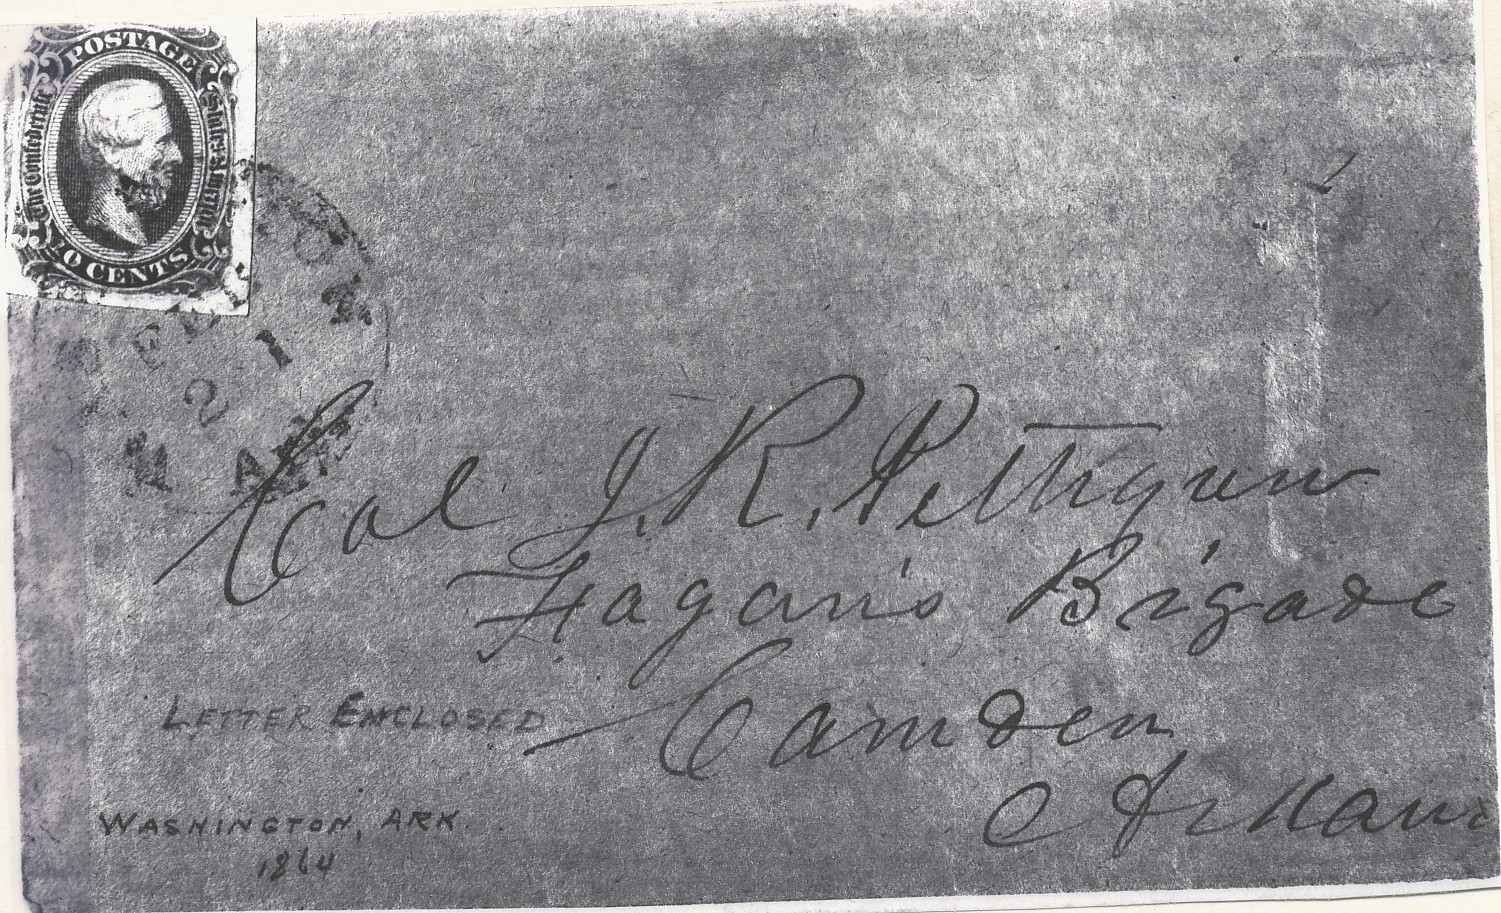 POSTAGE
The Confederate States of America
10 CENTS
DEC
21
Col J. R. Pettigrew
Fagan's Brigade
LETTER ENCLOSED
Camden
Arkans
WASHINGTON, ARK.
1864